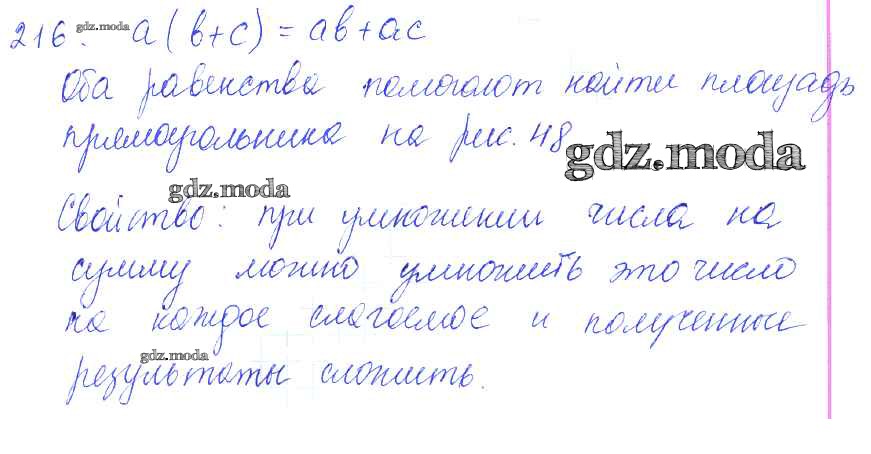 216. gdz.moda a(b+c) = ab+ac
Оба равенства помогают найти площадь
прямоугольника на рис. 48
gdz.moda
gdz.moda
Свойство: при умножении числа на
сумму можно умножить это число
на каждое слагаемое и полученные
gdz.moda
результаты сложить.